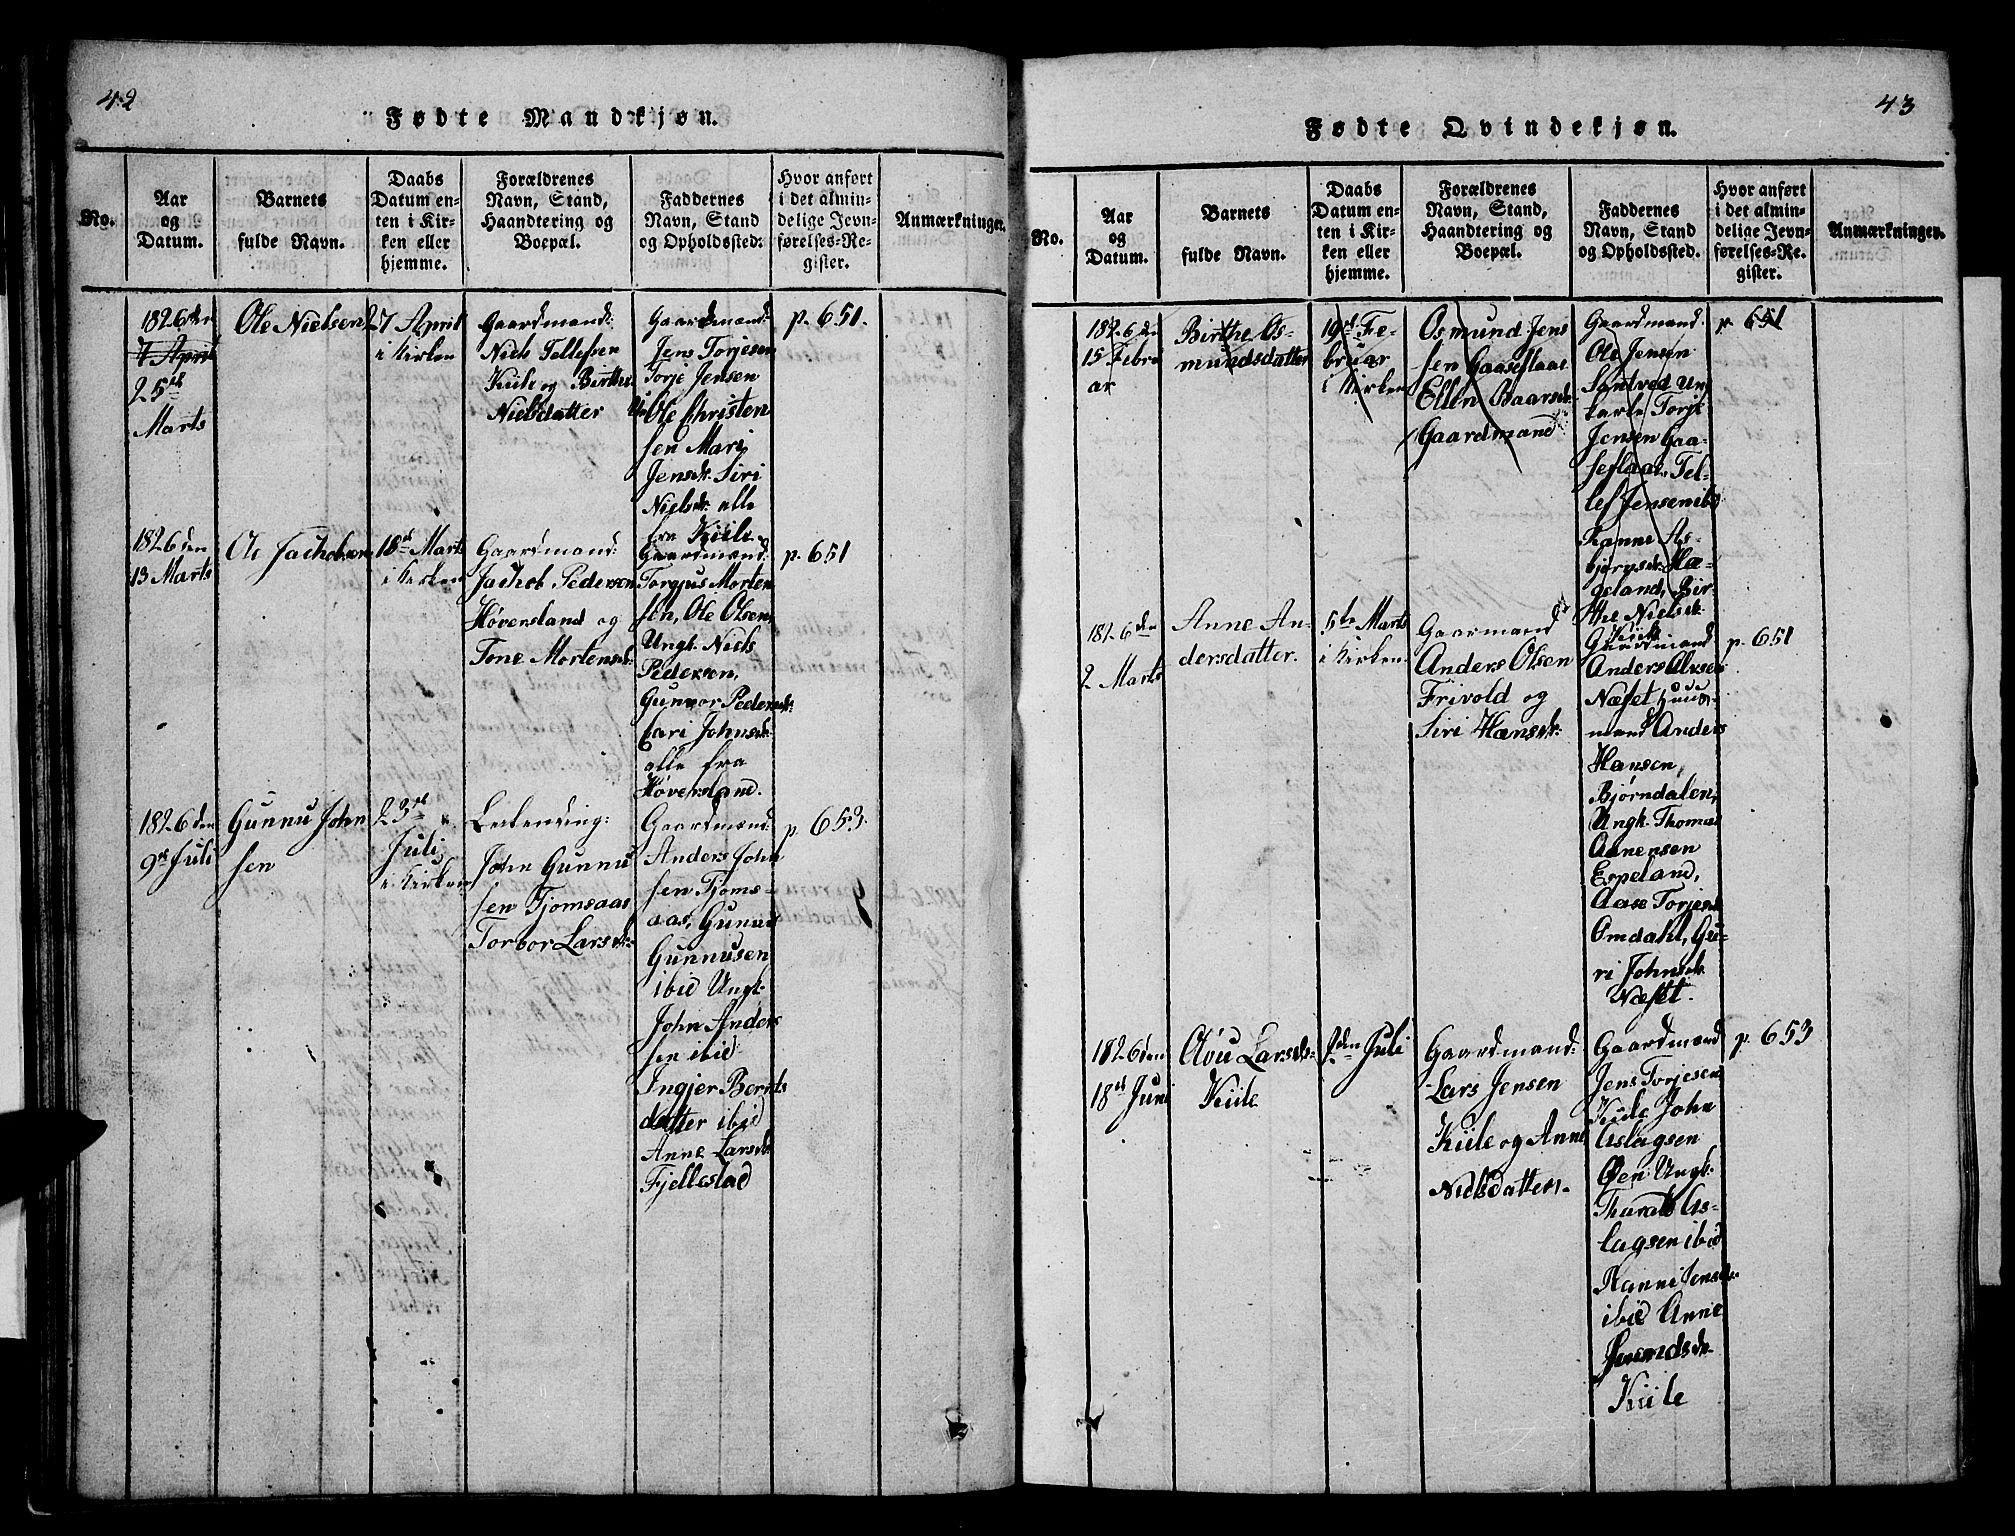 42
Fødte Mandkjøn.
No.
Aar
og
Datum.
Barnets
fulde Navn.
Daabs
Datum en-
ten i Kir-
ken eller
hjemme.
Forældrenes
Navn, Stand,
Haandtering og
Boepæl.
Faddernes
Navn, Stand
og Opholdssted.
Hvor anført
i det almin-
delige Jevn-
førelses-Re-
gister.
Anmærkninger.
1826 den
7 April
25de
Marts
Ole Nielsen
27 April
i Kirken
Gaardmand:
Niels Tellefsen
Kiile og Birthe
Nielsdatter
Gaardmænd:
Jens Torjesen
Torje Jensen
Un: Ole Christen
sen Mari
Jensdr. Siri
Nielsdr. alle
fra Kiile
p. 651.
1826 den
13 Marts
Ole Jachobsen
18de Marts
i Kirken
Gaardmand:
Jachob Pedersen
Høversland og
Tone Mortensdr.
Gaardmænd:
Torgjus Morten
sen, Ole Olsen,
Ungk. Niels
Pedersen,
Gunvor Pedersdr.
Cari Johnsdr.
alle fra
Høversland.
p. 651
1826 den
9de Juli
Gunnu John
sen
23de
Juli
i Kirken
Leilending:
John Gunnu
sen Tjomsaas
Torbor Larsdr.
Gaardmænd:
Anders John
sen Tjoms-
aas, Gunnu
Gunnusen
ibid Ungk.
John Anders
sen ibid
Ingjer Bernts
datter ibid
Anne Larsdr.
Fjellestad
p. 653.
43
Fødte Qvindekjøn.
No.
Aar
og
Datum.
Barnets
fulde Navn.
Daabs
Datum en-
ten i Kir-
ken eller
hjemme.
Forældrenes
Navn, Stand,
Haandtering og
Boepæl.
Faddernes
Navn, Stand
og Opholdssted.
Hvor anført
i det almin-
delige Jevn-
førelses-Re-
gister.
Anmærkninger.
1826 den
15 Febru
ar
Birthe Os-
mundsdatter
19de Fe-
bruar
i Kirken
Osmund Jens
sen Gaaseflaae
Ellen Baarsdr.
Gaardmand
Gaardmand:
Ole Jensen
Sandved Un
karle Torje
Jensen Gaa-
seflaae Tel-
lef Jensen ibd
Ranne As-
bjørnsdr. Hæ-
geland, Bir-
the Nielsdr.
Kiile
p. 651
1826 den
2 Marts
Anne An-
dersdatter.
5te Marts
i Kirken.
Gaarmand
Anders Olsen
Frivold og
Siri Hansdr.
Gaardmand
Anders Olsen
Næset Huus-
mand Anders
Hansen,
Bjørndalen,
Ungk. Thomas
Aanensen
Espeland,
Aase Torjesdr.
Omdahl, Gu-
ri Johnsdr.
Næset.
p. 651
1826 den
18de Juni
Avu Larsdr.
Kiile
2den Juli
Gaardmand:
Lars Jensen
Kiile og Anne
Nielsdatter.
Gaardmænd
Jens Torjesen
Kiile John
Aslagsen
Øen: Ungk.
Tharald As-
lagsen ibid
Ranni Jensdr.
ibid Anne
Kiile
p. 653